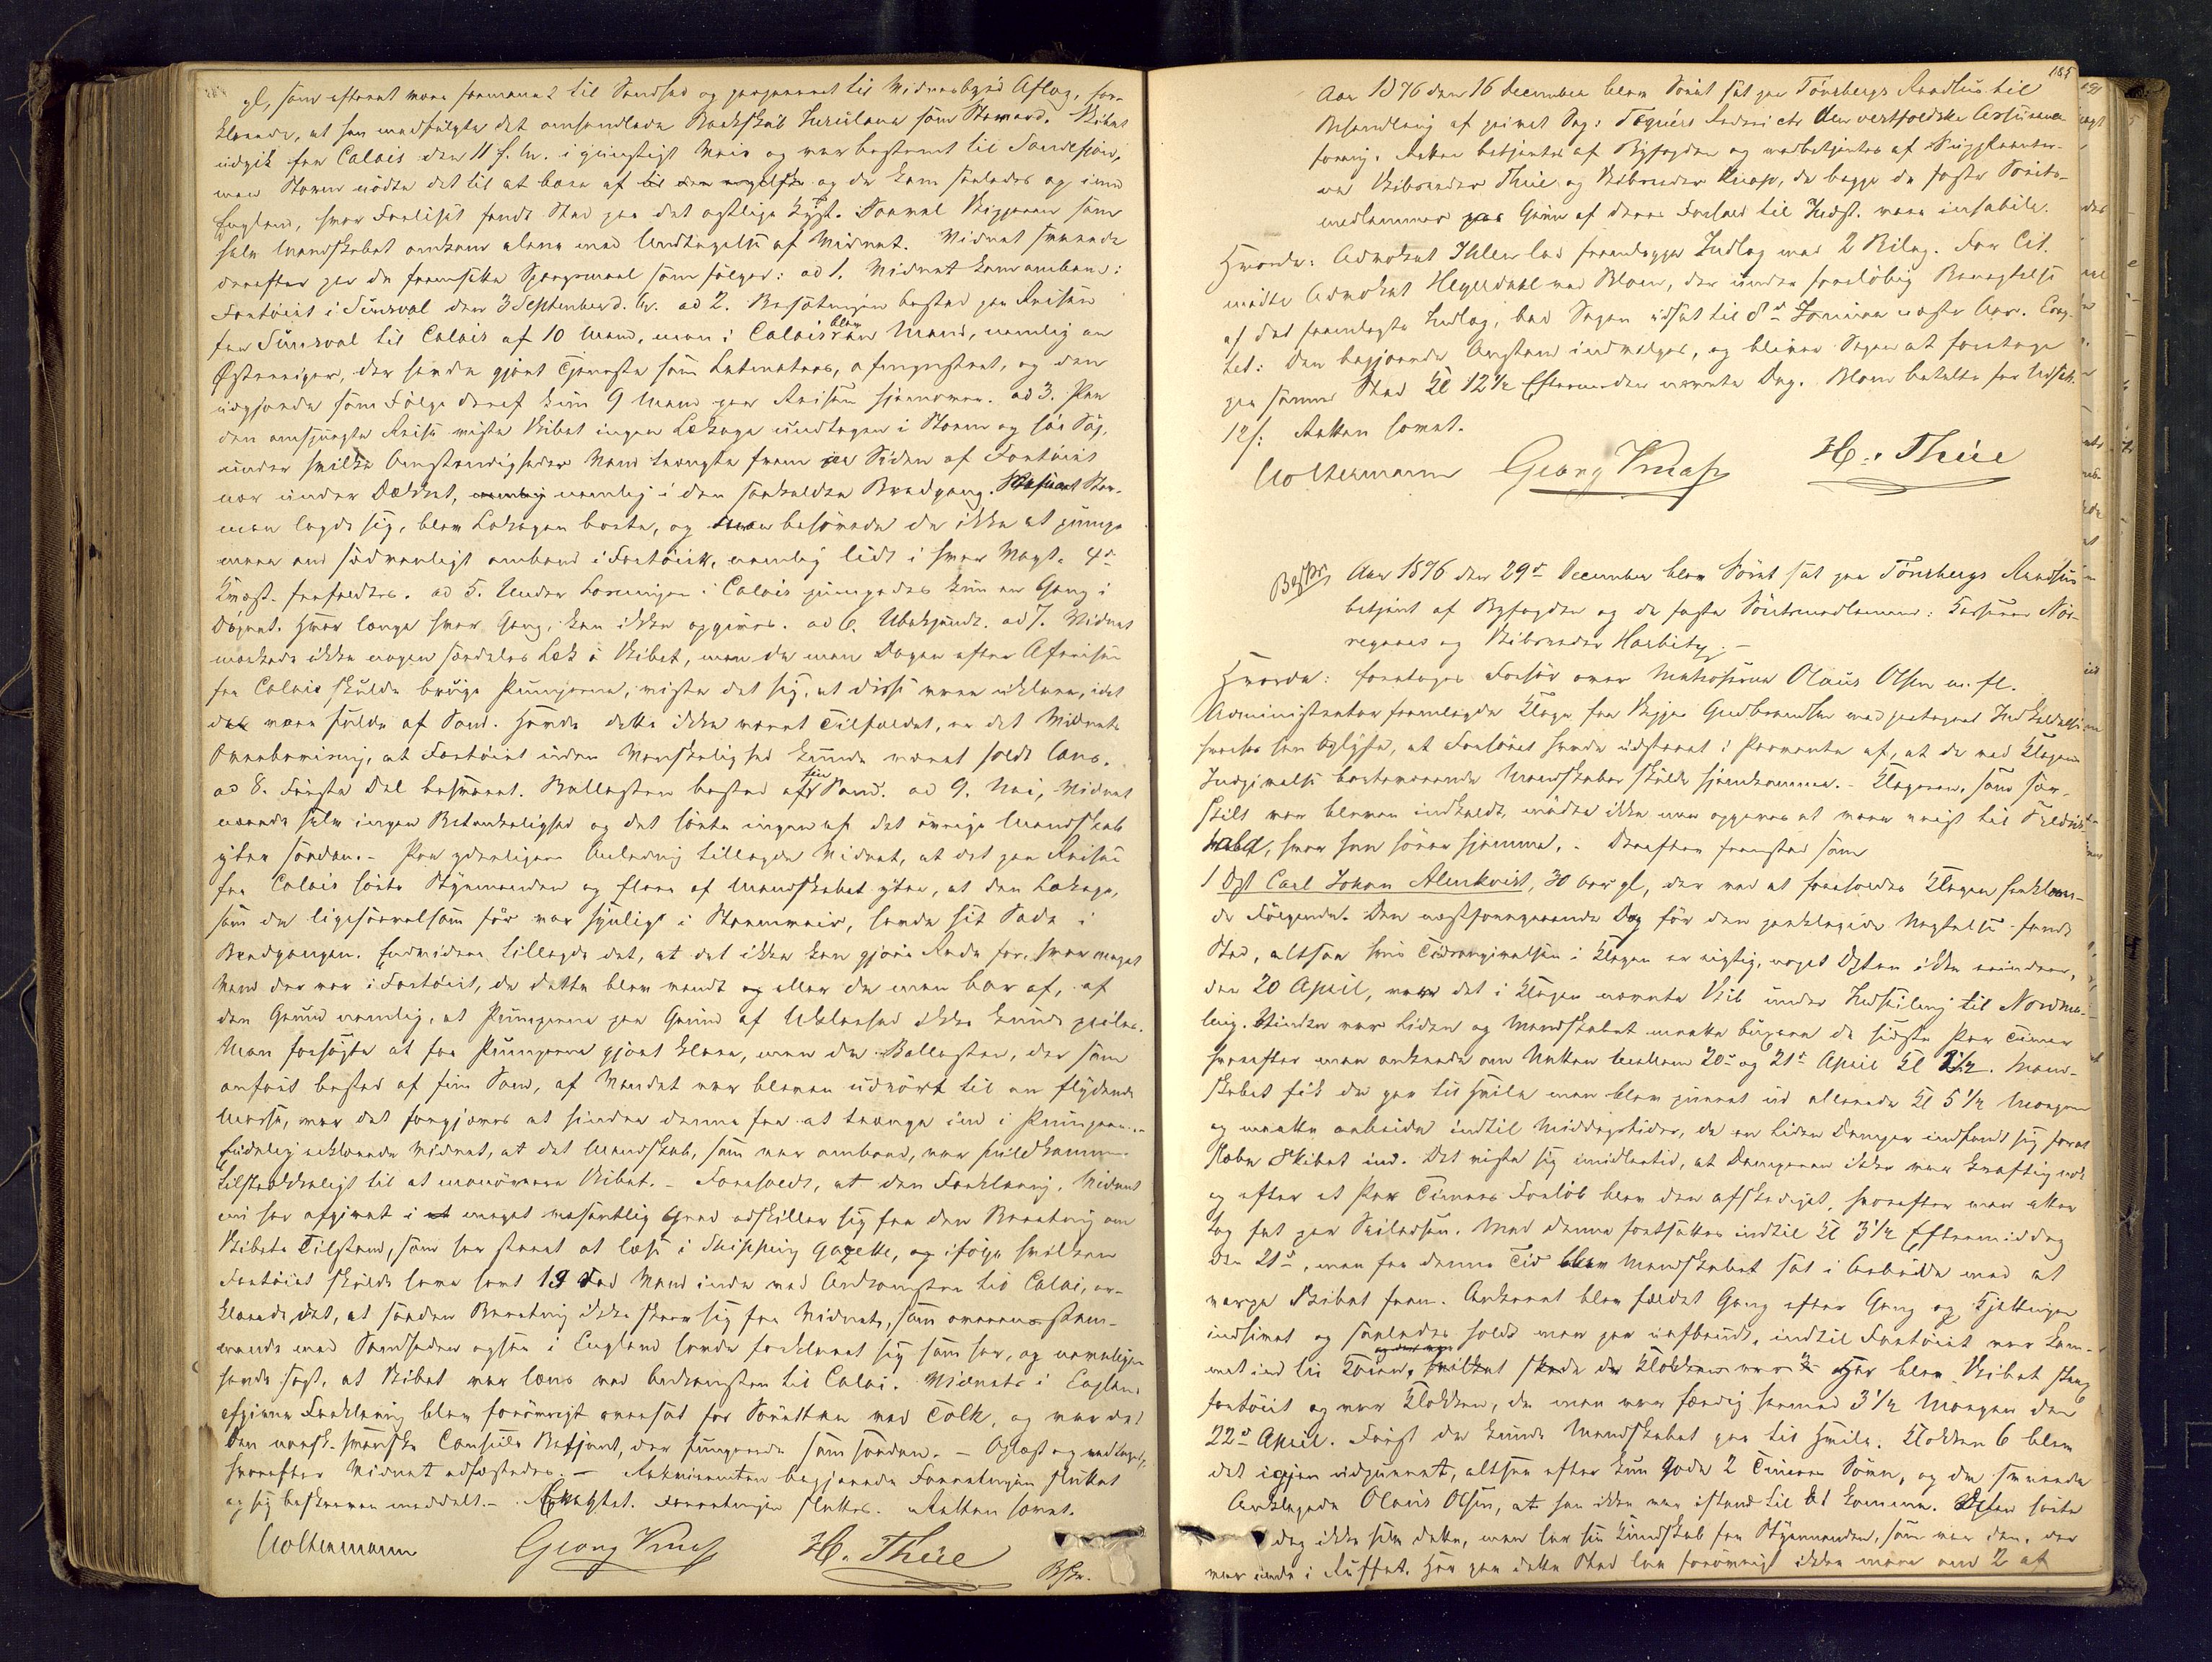 gl, som efterat være formanet til Sandhed og præpareret til Vidnesbyrds Aflæg, for-
klarede, at han medfulgte det omhandlede Barkskib Herculana som Steward. Skibet
udgik fra Calais den 11 f. M. i gunstigt Veir og var bestemt til Sandefjord,
men Storm nødte det til at bære af og de kom saaledes op imod
England, hvor Forliset fandt Sted paa det østlige Kyst. Saavel Skipperen som
hele Mandskabet omkom alene med Undtagelse af Vidnet. Vidnet svarede
derefter paa de fremsatte Spørgsmaal som følger: ad 1. Vidnet kom ombord i
Fartøiet i Sundsval den 3 September d. Ar. ad 2. Besætningen bestod paa Reisen
fra Sundsval til Calais af 10 Mand, men i Calais blev en Mand, nemlig en
Østerriger, der havde gjort Tjeneste som Letmatros, afmønstret, og den
udgjorde som Følge deraf kun 9 Mand paa Reisen hjemover. ad 3. Paa
den omspurgte Reise viste Skibet ingen Lækage undtagen i Storm og høi Sø,
under hvilke Omstændigheder Vand trængte frem paa Siden af Fartøiet
nær under Dækket, nemlig i den saakaldte Vandgang. Saasnart Stor-
men lagde sig, blev Lækagen borte, og man behøvede da ikke at pumpe
mere end sædvanligt ombord i Fartøier, nemlig lidt i hver Vagt. 4de
Qvæst. frafaldtes. ad 5. Under Losningen i Calais pumpedes kun en Gang i
Døgnet. Hvor længe hver Gang, kan ikke opgives. ad 6. Ubekjendt. ad 7. Vidnet
mærkede ikke nogen særdeles Læk i Skibet, men da man Dagen efter Afreisen
fra Calais skulde bruge Pumperne, viste det sig, at disse vare uklare, idet
de vare fulde af Sand. Havde dette ikke været Tilfældet, er det Vidnets
Overbevisning, at Fartøiet uden Vanskelighed kunde været holdt læns.
ad 8. Første Del besvaret. Ballasten bestod af fin Sand. ad 9. Nei, Vidnet
nærede selv ingen Betænkelighed og det hørte ingen af det øvrige Mandskab
ytre saadan. - Paa yderligere Anledning tillagde Vidnet, at det paa Reisen
fra Calais hørte Styrmanden og flere af Mandskabet ytre, at den Lækage,
som da ligesaavelsom før var synligt i Stormveir, havde sit Sæde i
Vandgangen. Endvidere tillagde det, at det ikke kan gjøre Rede for, hvor meget
Vand der var i Fartøiet, da dette blev vendt og eller da man bar af, af
den Grund nemlig, at Pumperne paa Grund af Uklarhed ikke kunde peiles.
Man forsøgte at faa Pumperne gjort klare, men da Ballasten, der som
anført bestod af fin Sand, af Vandet var bleven udrørt til en flydende
Masse, var det forgjæves at hindre denne fra at trænge ind i Pumperne.
Endelig erklærede Vidnet, at det Mandskab, som var ombord, var fuldkommen
tilstrækkeligt til at manøvrere Skibet. - Foreholdt, at den Forklaring, Vidnet
nu har afgivet i meget væsentlig Grad adskiller sig fra den Beretning om
Skibets Tilstand, som har staaet at læse i Shipping Gazette, og ifølge hvilken
Fartøiet skulde have havt 13 Fod Vand inde ved Ankomsten til Calai, er-
klærede det, at saadan Beretning ikke skrev sig fra Vidnet, som overens-stem-
mende med Sandheden ogsaa i England havde forklaret sig som her, og navnligen
havde sagt, at Skibet var læns ved Ankomsten til Calai. Vidnets i England
afgivne Forklaring blev forøvrigt oversat for Søretten ved Tolk, og var det
den norsk-svenske Consuls Betjent, der fungerede som saadan. - Oplæst og vedtaget,
hvorefter Vidnet edfæstedes. - Rekvirenten begjærede Forretningen sluttet
og sig beskreven meddelt. - Eragtet. Forretningen sluttes. Retten hævet.
Woltermann Georg Knap H. Thue
Bskr.
185
Aar 1876 den 16 December blev Søret sat paa Tønsbergs Raadhus til
Behandling af privat Sag: Føyners Rederi ctr Den vestfoldske Assurance
forening. Retten betjentes af Byfogden og medbetjentes af Suppleanter-
ne Skibsreder Thue og Skibsreder Knap, da begge de faste Sørets-
medlemmer paa Grund af deres Forhold til Indst. vare inhabile.
Hvorda: Advokat Ihlen lod fremlægge Indlæg med 2 Bilag. For Cit.
mødte Advokat Heyerdahl ved Blom, der under foreløbig Benægtelse
af det fremlagte Indlæg, bad Sagen udsat til 8de Januar næste Aar. Erag-
tet: Den begjærede Anstand indvilges, og bliver Sagen at foretage
paa samme Sted Kl 12½ Eftermiddag nævnte Dag. Blom betalte for Udsæt.
12 s: Retten hævet.
Woltermann Georg Knap H. Thue
Begjær Aar 1876 den 29de December blev Søret sat paa Tønsbergs Raadhus
betjent af Byfogden og de faste Søretsmedlemmer: Kasserer Nør-
regaard og Skibsreder Harbitz. -
Hvorda: foretoges Forhør over Matroserne Olaus Olsen m. fl.
Administrator fremlagde Klage fra Skipper Gudbrandsen med paategnet Indkaldelse
hvorhos han oplyste, at Forhøret havde udstaaet i Paavente af, at de ved Klagens
Indgivelse bortværende Mandskaber skulde hjemkomme. - Klageren, som sær-
skilt var bleven indkaldt, mødte ikke men opgaves at være reist til Fredriks-
hald, hvor han hører hjemme. - Derefter fremstod som
1 Dpt Carl Johan Almkvist, 30 Aar gl, der ved at foreholdes Klagen forklare-
de Følgende. Den næstforegaaende Dag før den paaklagede Nægtelse fandt
Sted, altsaa hvis Tidsangivelsen i Klagen er rigtig, noget Dpten ikke erindrer,
den 20 April, var det i Klagen nævnte Skib under Indseiling til Nordma-
ling. Vinden var liden og Mandskabet maatte buxere de sidste Par Timer
hvorefter man ankrede om Natten mellem 20de og 21de April Kl 2½. Mand-
skabet fik da gaa til Hvile men blev purret ud allerede Kl 5½ Morgen
og maatte arbeide indtil Middagstider, da en liden Damper indfandt sig forat
slæbe Skibet ind. Det viste sig imidlertid, at Damperen ikke var kraftig nok
og efter et Par Timers Forløb blev den afskediget, hvorefter man atter
tog fat paa Seiladsen. Med denne fortsattes indtil Kl 3½ Eftermiddag
den 21de, men fra denne Tid blev Mandskabet sat i Arbeide med at
varpe Skibet frem. Ankeret blev fældet Gang efter Gang og Kjettingen
indhivet og saaledes holdt man paa uafbrudt, indtil Fartøiet var kom-
met ind til Havn, Her blev Skibet strax
fortøiet og var Klokken, da man var færdig hermed 3½ Morgen den
22de April. Først da kunde Mandskabet gaa til Hvile. Klokken 6 blev
det igjen udpurret, altsaa efter kun godt 2 Timers Søvn, og da svarede
Anklagede Olaus Olsen, at han ikke var istand til at komme. Dpten hørte
dog ikke selv dette, men har sin Kundskab fra Styrmanden, som var den, der
var inde i Ruffet. Her paa dette Sted laa forøvrigt ikke mere end 2 af